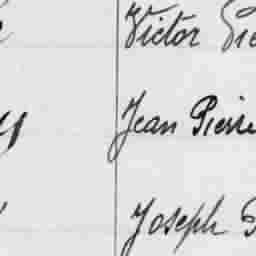 Victor
Jean Pierre
Joseph